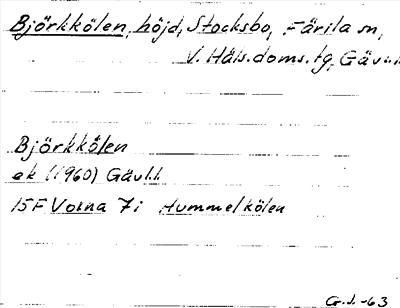 Björkkölen, höjd, Stocksbo, Färila sn,
V. Häls. doms. tg, Gävl.l
Björkkölen
ek (1960) Gävl.l.
15F Voxna 7i Hummelkölen
G.J.-63